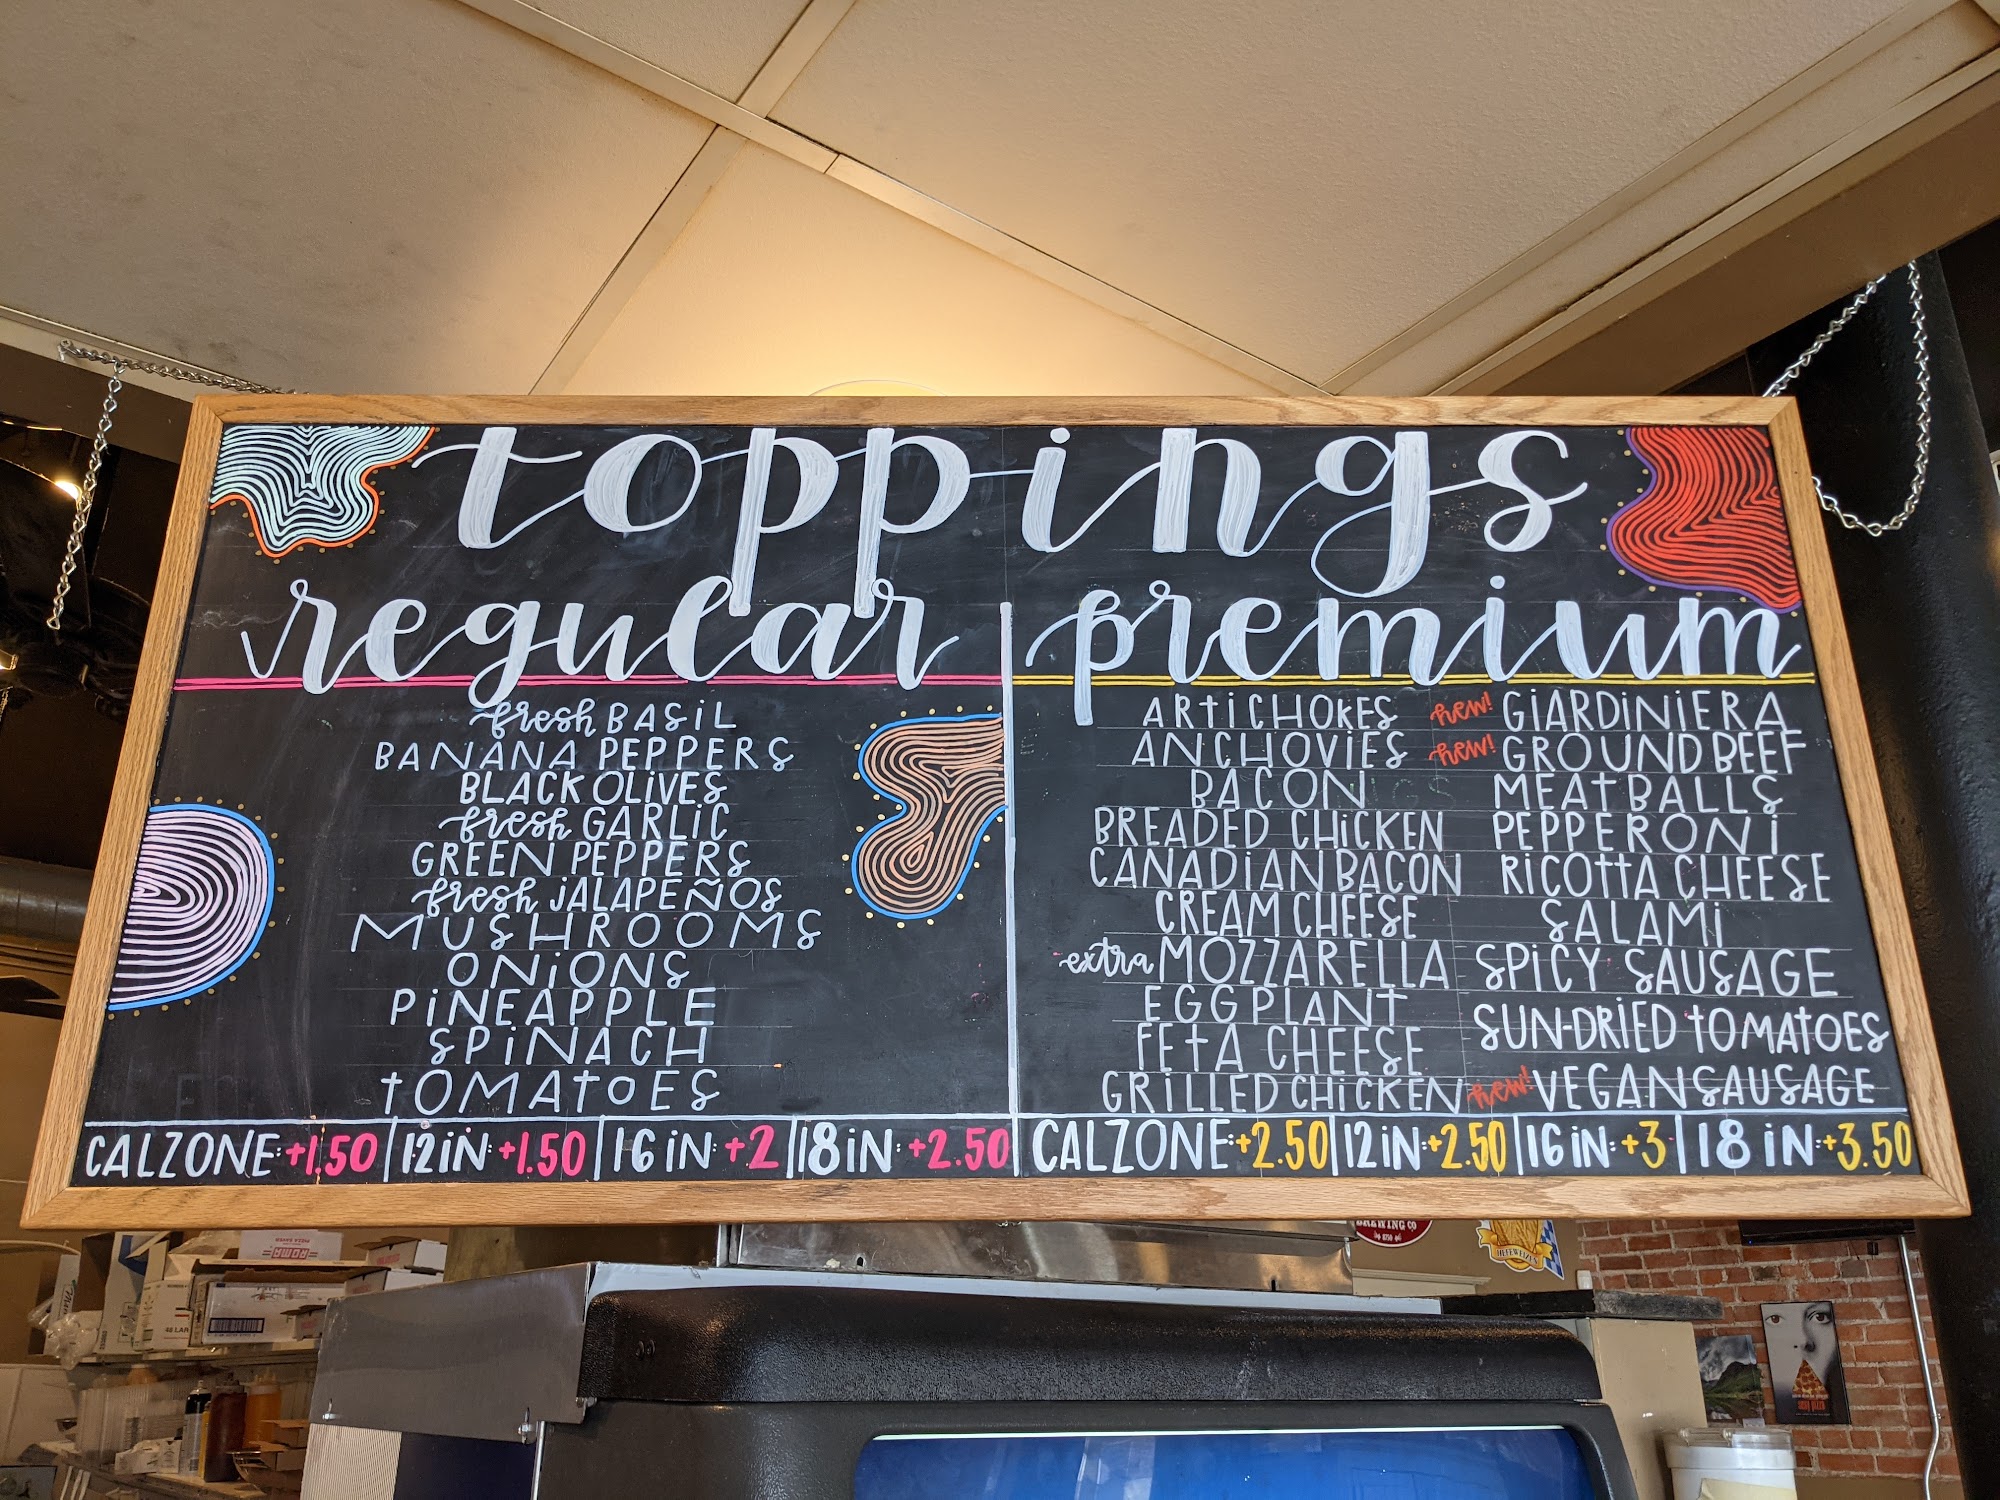 toppings
regular
fresh BASIL
BANANA PEPPERS
BLACK OLIVES
fresh GARLIC
GREEN PEPPERS
fresh JALAPEÑOS
MUSHROOMS
ONIONS
PINEAPPLE
SPINACH
TOMATOES
CALZONE:+1.50 | 12 IN:+1.50 | 16 IN:+2 | 18 IN:+2.50
premium
ARTICHOKES
ANCHOVIES
BACON
BREADED CHICKEN
CANADIAN BACON
CREAM CHEESE
extra MOZZARELLA
EGGPLANT
FETA CHEESE
GRILLED CHICKEN
new! GIARDINIERA
new! GROUND BEEF
MEATBALLS
PEPPERONI
RICOTTA CHEESE
SALAMI
SPICY SAUSAGE
SUN-DRIED TOMATOES
new! VEGAN SAUSAGE
CALZONE:+2.50 | 12 IN:+2.50 | 16 IN:+3 | 18 IN:+3.50
BREWING CO
HEFEWEIZEN
ROMA